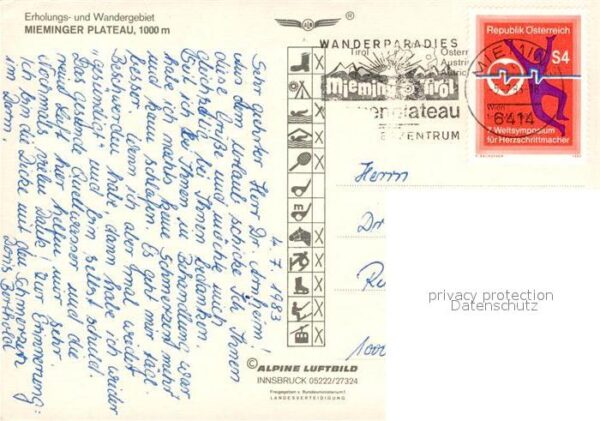 Erholungs- und Wandergebiet
MIEMINGER PLATEAU, 1000 m
®
WANDERPARADIES
Tirol
Mieming Tirol
plateau
ZENTRUM
MIEMING
6414
Republik Österreich
S4
7. Weltsymposium
für Herzschrittmacher
4.7.1983
Sehr geehrter Herr Dr.
Aus dem Urlaub schicke ich Ihnen
diese Grüße und möchte mich
gleichzeitig bei Ihnen bedanken.
Seit ich bei Ihnen in Behandlung war
habe ich nachts keine Schmerzen mehr
und kann schlafen. Es geht mir tägl.
besser. Wenn ich aber mal wieder
Beschwerden habe, dann habe ich wieder
"gesündigt" und bin selbst schuld.
Das gesunde Quellwasser und die
neue Luft hier helfen mir sehr.
Nochmals vielen Dank. Zur Erinnerung:
ich bin die Dicke mit den Schmerzen
im Darm. Doris Berthold
Herrn
Dr
1000
privacy protection
Datenschutz
© ALPINE LUFTBILD
INNSBRUCK 05222/27324
Freigegeben v. Bundesministerium f.
LANDESVERTEIDIGUNG